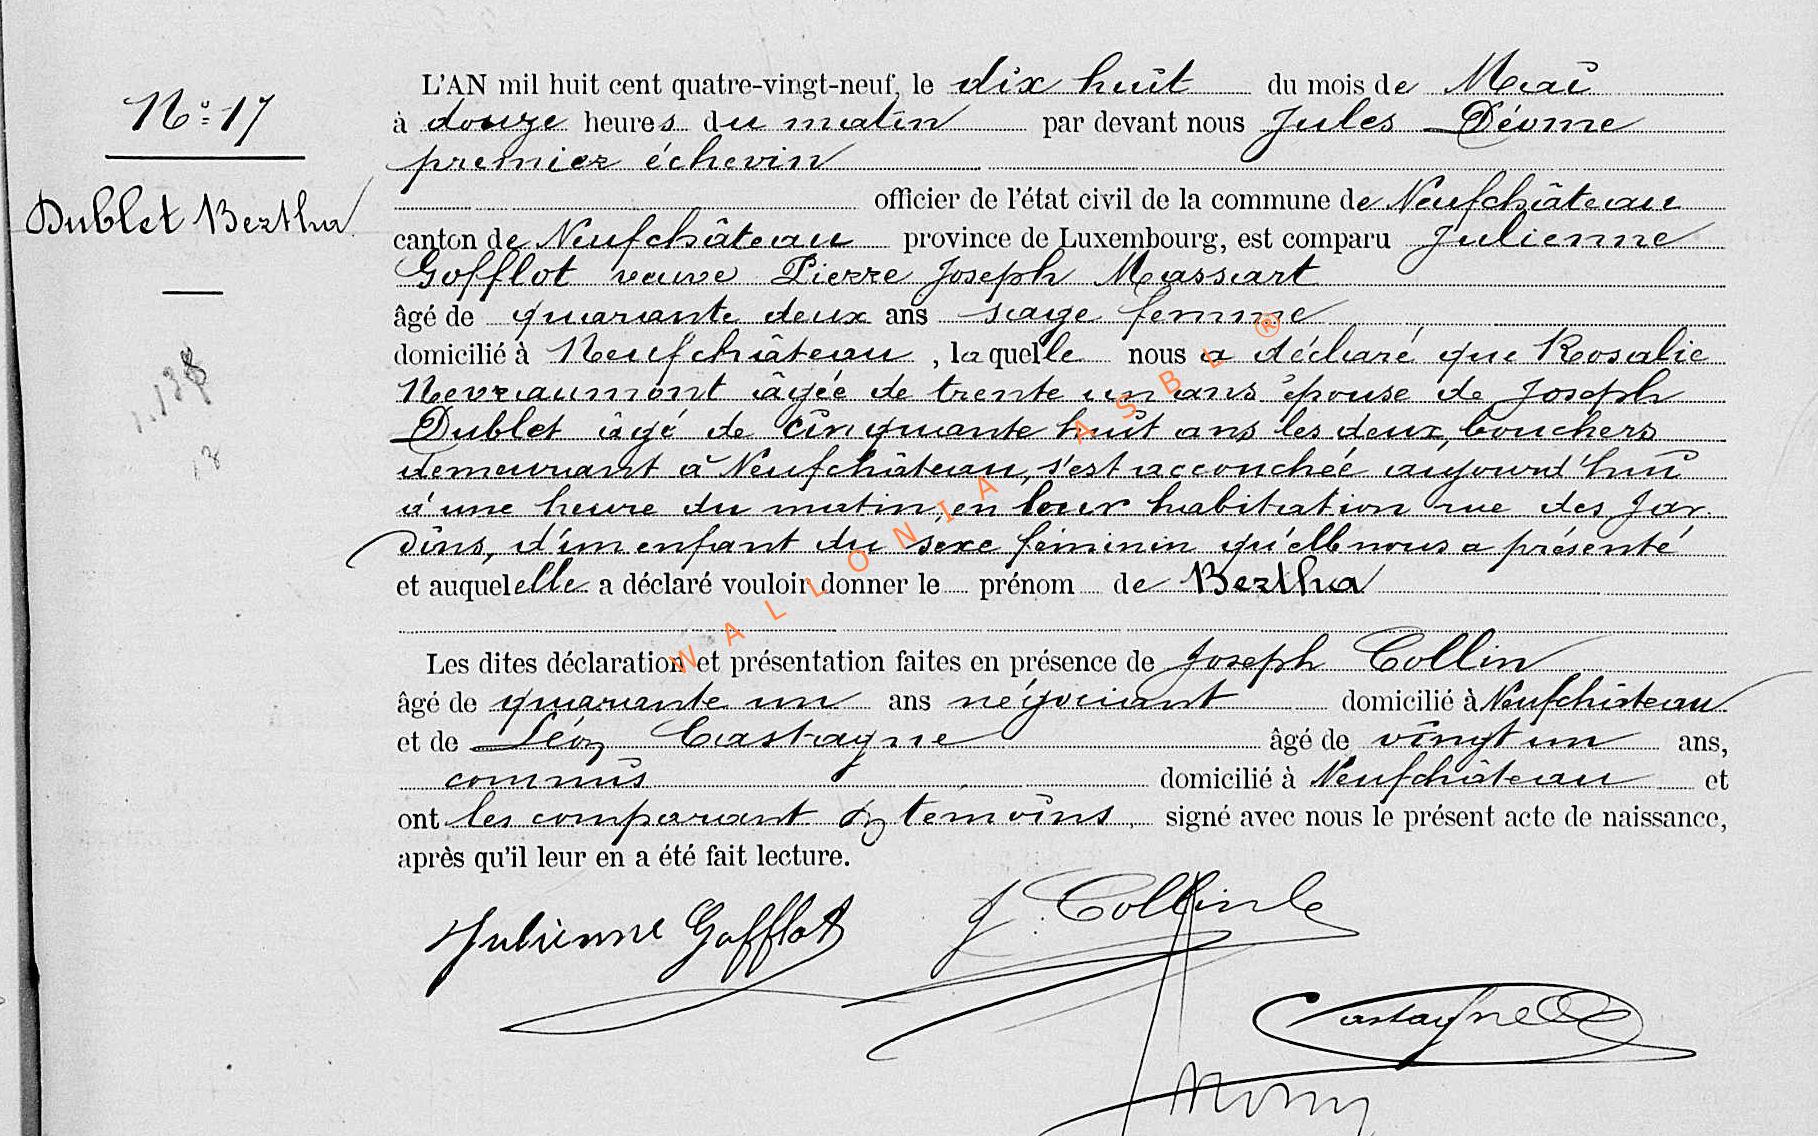 N° 17
Dublet Bertha
L'AN mil huit cent quatre-vingt-neuf, le dix huit du mois de Mai
à douze heures du matin par devant nous Jules Déome
premier échevin
officier de l'état civil de la commune de Neufchâteau
canton de Neufchâteau province de Luxembourg, est comparu Julienne
Gofflot veuve Pierre Joseph Massart
âgé de quarante deux ans sage femme
domicilié à Neufchâteau, laquelle nous a déclaré que Rosalie
Nevraumont âgée de trente un ans épouse de Joseph
Dublet âgé de cinquante huit ans les deux, bouchers
demeurant à Neufchâteau, s'est accouchée aujourd'hui
à une heure du matin, en leur habitation rue des Jar
dins, d'un enfant du sexe féminin qu'elle nous a présenté
et auquel elle a déclaré vouloir donner le prénom de Bertha
Les dites déclaration et présentation faites en présence de Joseph Collin
âgé de quarante un ans négociant domicilié à Neufchâteau
et de Léon Castagne âgé de vingt un ans,
commis domicilié à Neufchâteau et
ont les comparant & témoins signé avec nous le présent acte de naissance,
après qu'il leur en a été fait lecture.
Julienne Gofflot J. Collin
Castagne
WALLONIA ASBL ®